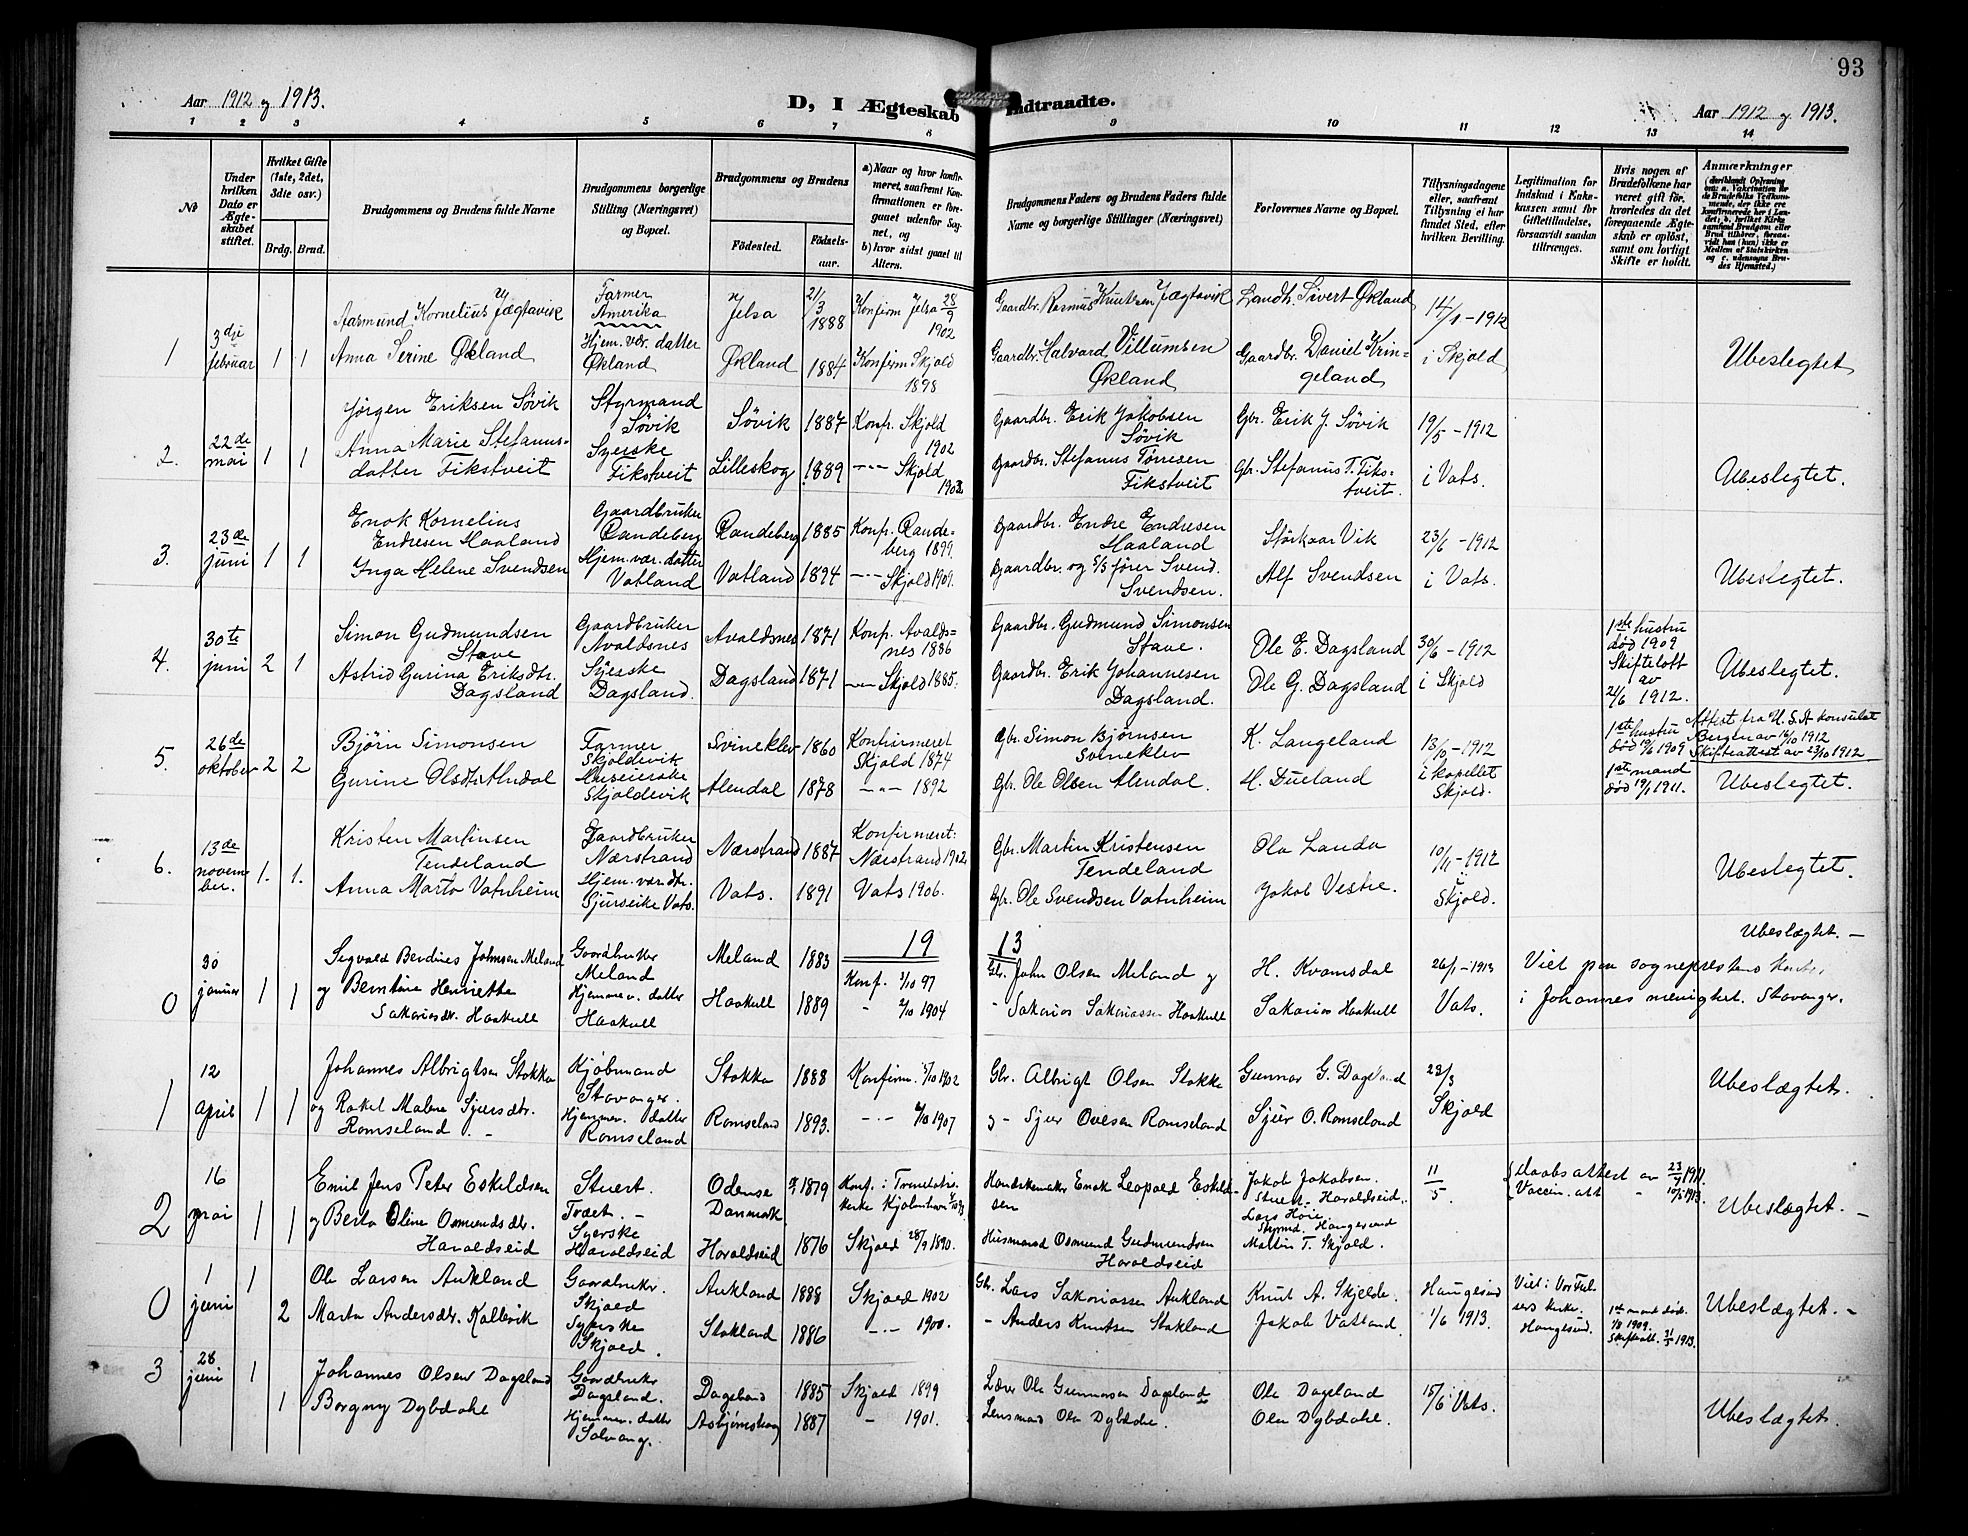 93
Aar 1912 og 1913.
D, I Ægteskab Indtraadte.
Aar 1912 og 1913.
1 2 3 4 5 6 7 8 9 10 11 12 13 14
No
Under hvilken Dato er Ægteskabet stiftet.
Hvilket Gifte (1ste, 2det, 3die osv.)
Brdg. Brud.
Brudgommens og Brudens fulde Navne
Brudgommens borgerlige Stilling (Næringsvei) og Bopæl.
Brudgommens og Brudens
Fødested.
Fødselsaar.
a) Naar og hvor konfirmeret, saafremt Konfirmationen er foregaaet udenfor Sognet, og
b) hvor sidst gaaet til Alters.
Brudgommens Faders og Brudens Faders fulde Navne og borgerlige Stillinger (Næringsvei)
Forlovernes Navne og Bopæl.
Tillysningsdagene eller, saafremt Tillysning ei har fundet Sted, efter hvilken Bevilling.
Legitimation for Indskud i Enkekassen samt for Giftetilladelse, forsaavidt saadan tiltrænges.
Hvis nogen af Brudefolkene har været gift før, hvorledes da det foregaaende Ægteskab er opløst, samt om lovligt Skifte er holdt.
Anmærkninger
1 3dje februar 1 1
Aasmund Kornelius Jægtavik
Anna Serine Økland
Farmer Amerika
Hjem. vær. datter Økland
Jelsa 21/3 1888
Økland 1884
Konfirm Jelsa 28/9 1902
Konfirm Skjold 1898
Gaardbr. Rasmus Knutsen Jægtavik
Gaardbr. Halvard Villumsen Økland
Landh. Sivert Økland
Gaardbr. Daniel Kringeland
14/1 - 1912 i Skjold
Ubeslegtet
2. 22de mai 1 1
Jørgen Eriksen Søvik
Anna Marie Stefanusdatter Fikstveit
Styrmand Søvik
Syerske Fikstveit
Søvik 1887
Lilleskog 1889
Konf. Skjold 1902
-"- Skjold 1903
Gaardbr. Erik Jakobsen Søvik
Gaardbr. Stefanus Tørresen Fikstveit
Gbr. Erik J. Søvik
Gbr. Stefanus T. Fikstveit.
19/5 - 1912 i Vats.
Ubeslegtet.
3. 23de juni 1 1
Enok Kornelius Endresen Haaland
Inga Helene Svendsen
Gaardbruker Randeberg
Hjem. vær. datter Vatland
Randeberg 1885
Vatland 1894
Konf. Randeberg 1899.
-"- Skjold 1909.
Gaardbr. Endre Endresen Haaland
Gaardbr. og S/S fører Svend Svendsen.
Størkaar Vik
Alf Svendsen
23/6 - 1912 i Vats.
Ubeslegtet.
4. 30te juni 2 1
Simon Gudmundsen Stave
Astrid Gurina Eriksdtr. Dagsland
Gaardbruker Avaldsnes
Syerske Dagsland.
Avaldsnes 1871
Dagsland 1871
Konf. Avaldsnes 1886
-"- Skjold 1885.
Gaardbr. Gudmund Simonsen Stave.
Gaardbr. Erik Johannesen Dagsland.
Ole E. Dagsland
Ole G. Dagsland
30/6 - 1912 i Skjold
1ste hustru død 1909 Skifteløft av 21/6 1912.
Ubeslegtet.
5. 26de oktober 2 2
Bjørn Simonsen
Gurine Olsdtr Alendal
Farmer Skjoldevik
Huseierske Skjoldevik
Svineklev 1860
Alendal 1878
Konfirmeret Skjold 1874
-"- 1892
Gbr. Simon Bjørnsen Svineklev
Gbr. Ole Olsen Alendal
K. Langeland
H. Dueland
13/10 - 1912 i kapellet Skjold.
1ste hustru død 1909
1ste mand død 19/1 1911.
Attest fra U.S.A konsulat Bergen av 16/10 1912
Skifteattest av 23/10 1912
Ubeslegtet.
6. 13de november. 1. 1.
Kristen Martinsen Tendeland
Anna Marta Vatnheim
Gaardbruker Nærstrand
Hjem. vær dtr. Gjurseike Vats.
Nærstrand 1887
Vats. 1891
Konfirmeret: Nærstrand 1902
Vats 1906.
Gbr. Martin Kristensen Tendeland
Gbr. Ole Svendsen Vatnheim
Ola Landa
Jakob Vestre.
10/11 - 1912 i Skjold.
Ubeslegtet.
19 13
0 30 januar 1 1
Sigvald Berdines Johnsen Meland
og Berntine Henriette Sakariasdr. Haakull
Gaardbruker Meland
Hjemmev. datter Haakull
Meland 1883
Haakull 1889
Konf. 3/10 97
- 2/10 1904
Gbr. John Olsen Meland og
- Sakarias Sakariassen Haakull
H. Kvamsdal
Sakarias Haakull
26/1 - 1913 Vats.
Viet paa sogneprestens kontor, i Johannes menighet. Stavanger.
Ubeslægtet. -
1 12 April 1 1
Johannes Albrigtsen Stokka
og Rakel Malene Sjursdr. Romseland. -
Kjøbmand Stavanger.
Hjemmev. datter Romseland
Stokka 1888
Romseland 1893.
Konfirm. 5/10 1902
-"- 6/10 1907
Gbr. Albrigt Olsen Stokke
og - Sjur Ovesen Romseland
Gunnar G. Dagsland
Sjur O. Romseland
23/3 Skjold
Ubeslægtet.
2 16 mai 1 1
Emil Jens Peter Eskildsen
og Berta Oline Osmundsdr. Haraldseid
Stuert. Træet. -
Syerske Haraldseid
Odense Danmark 1879
Haraldseid 1876
Skjold 28/9 1890.
Handskemaker Enok Leopold Eskildsen
Husmand Osmund Gudmundsen Haraldseid
Jakob Jakobsen. Stuert - Haraldseid.
Lars Høie. Styrmd Haugesund
Martin T. Skjold.
11/5
Daabsattest av 23/4 1911.
Vaccin. att " 10/5 1913.
Ubeslægtet. -
0 1 juni 1 2
Ole Larsen Aukland
Marta Andersdr. Kallevik
Gaardbruker Skjold
Syerske Skjold.
Aukland 1888
Stokland 1886
Skjold 1902
-"- 1900.
Gbr. Lars Sakariassen Aukland
- Anders Knutsen Stokland
Knut A. Skjelde.
Jakob Vatland.
Haugesund 1/6 1913.
Viet i Vor Frelsers kirke. Haugesund.
1ste mand død 1909. Skifteatt. 31/5 1913.
Ubeslægtet. -
3 28 juni 1 1
Johannes Olsen Dagsland
Borgny Dybdahl
Gaardbruker Dagsland.
Hjemmev. datter Solvang.
Dagsland 1885
Asbjørnskog 1887
Skjold 1899
- 1901.
Lærer Ole Gunnarsen Dagsland
Lensmand Ola Dybdahl.
Ole Dagsland
Olen Dybdahl.
15/6 Vats.
Ubeslægtet.